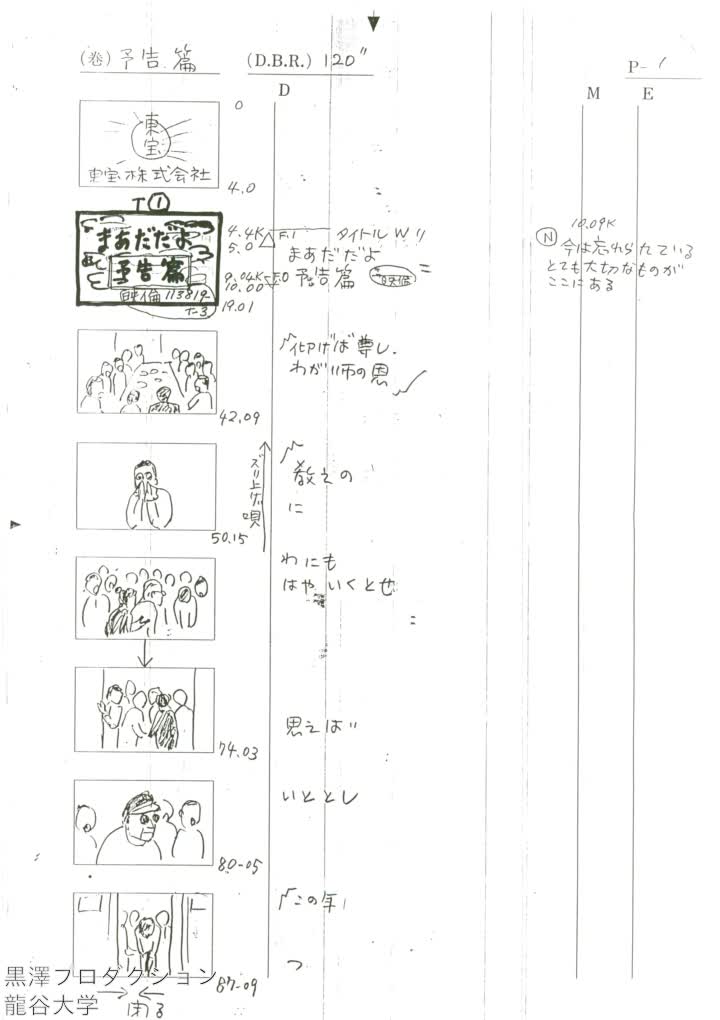 (巻) 予告篇
(D.B.R.) 120"
P- 1
D
M
E
東宝
東宝株式会社
0
4.0
T ①
まあだだよ
予告篇
映倫 113819
T-3
4.4K
5.0
9.04K
10.00
19.01
F.I
タイトル W
まあだだよ
F.O
予告篇
映倫
10.09K
N
今は忘れられている
とても大切なものが
ここにある
仰げば尊し
わが師の恩
42.09
ズリ上げ唄
教えの
に
50.15
わにも
はや いくとせ
思えば
74.03
いととし
80-05
この年
つ
87-09
閉る
黒澤プロダクション
龍谷大学